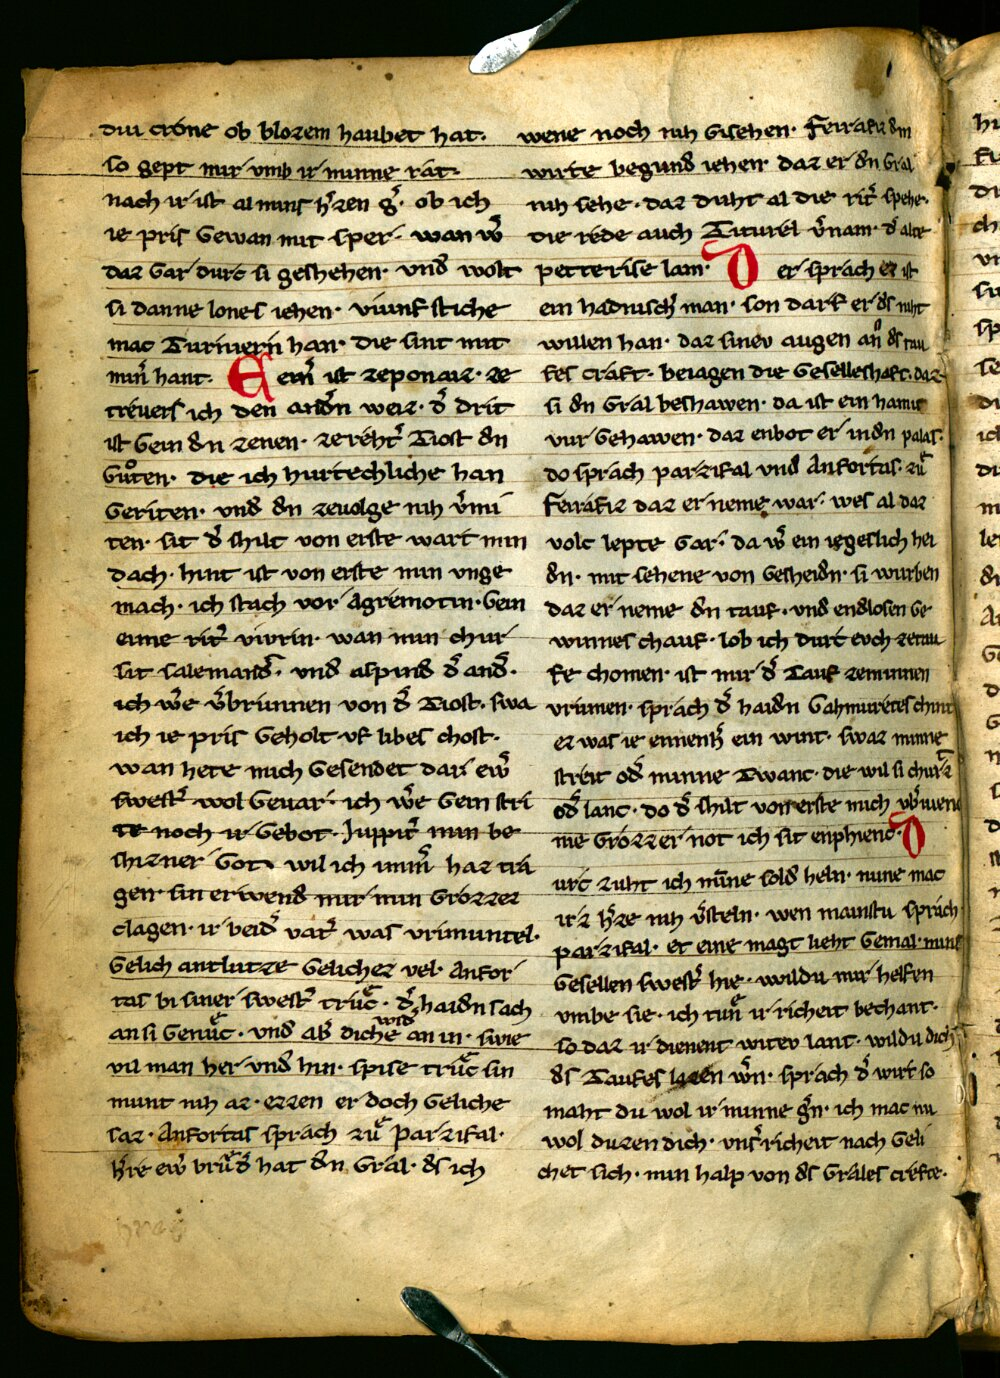 diu crône ob blozem haubet hat·
so gept mir vmb ir minne rat·
nach ir ist al mins h̓ren g̓· ob ich
ie pris Gewan mit sper· wan w̓
daz Gar durc si geshehen· vnd wolt
si danne lones iehen· viunf stiche
mac Turniern han· die sint mit
min̓ hant· Ein̓ ist zeponaiz· ze
treuers ich den andn̓ weiz· d̓ drit
ist Gein dn zenen· ze reht̓ Tiost dn
Guͦten· die ich hurtechliche han
Geriten· vnd dn zeuolge nih v̓mi
ten· sit d̓ shilt von erste wart min
dach· hint ist von erste min vnge
mach· ich stach vor Agremotin· Gein
eime rit̓ vivrin· wan min chur
sit salemand̓· vnd aspind d̓ and̓·
ich w̓e v̓brunnen von d̓ Tiost· swa
ich ie pris Geholt· vf libes chost·
wan hete mich Gesendet dar ew̓
swest̓ wol Geuar· ich w̓e Gein stri
te noch ir Gebot· Juppit̓ min be
shizner Got wil ich imm̓ haz tra
gen· sin erwend mir min Grozzez
clagen· ir beid̓ vat̓ was vrimuntel·
Gelich antlutze Gelichez vel· Anfor
tas bi siner swest̓ truͤc· d̓ haidn sach
an si Genuͤc· vnd ab̓ diche wid̓ an in· swie
vil man her vnd hin· spise truͤc sin
munt nih az· ezzen er doch Geliche
saz· Anfortas sprach zuͤ Parzifal·
h̓re ew̓ bruͤd̓ hat dn Gral· ds ich
wene noch nih Gisehen· Ferrafiz dm
wirte begund iehen· daz er dn Gral
nih sehe· daz duht al die rit̓ spehe·
die rede auch Titurel v̓nam· d̓ alte
petterise lam· Der sprach ez ist
ein hadnisch̓ man· son darf er ds niht
willen han· daz sinev augen an ds tau
fes craft· beiagen die Geselleshaft· daz
si dn Gral beshawen· da ist ein hamit
vur Gehawen· daz enbot er in dn palas·
do sprach parzifal vnd Anfortas· zuͤ
Ferrafiz daz er neme war· wes al daz
volc lepte Gar· da w̓ ein iegeslich hei
dn· mit sehene von Gesheidn· si wurben
daz er neme dn tauf· vnd endlosen Ge
winnes chauf· lob ich durc evch zetau
fe chomen· ist mir d̓ Tauf zeminnen
vrumen· sprach d̓ haidn Gahmuretes chint
ez was ie ennenh̓ ein wint· swaz minne
streit od̓ minne Twanc· die wil si churtz
od̓ lanc· do d̓ shilt von erste mich vb̓wend
nie Grozzer not ich sit enphienc· D
urc zuht ich min̄e sold heln· nune mac
ir z h̓ze nih v̓steln· wen mainstu sprach
parzifal· et eine magt lieht Gemal· mins
Gesellen swest̓ hie· wildu mir helfen
vmbe sie· ich tuͤn ir richeit bechant·
so daz ir dienent witev lant· wildu dich
ds Taufes lazen w̓n· sprach d̓ wirt so
maht du wol ir minne g̓n· ich mac nu
wol duzen dich· vns̓ richeit nach Geli
chet sich· min halp von ds Grales crefte·